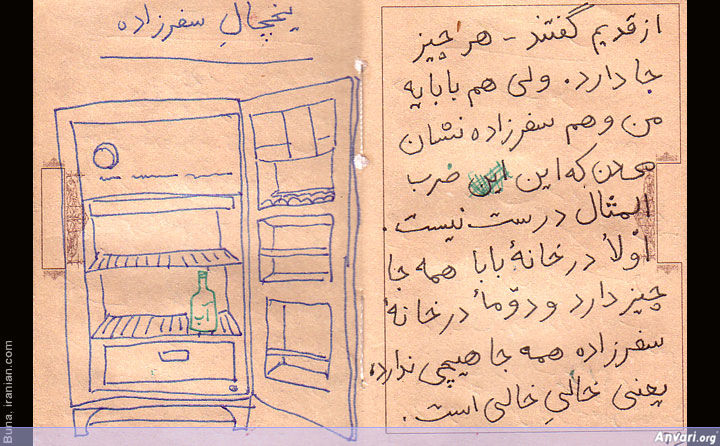 یخچالِ سفرزاده
از قدیم گفتند - هر چیز
جا دارد. ولی هم بابایه
من و هم سفرزاده نشان
میدن که این این ضرب
المثال درست نیست.
اوّلاً در خانهٔ بابا همه جا
چیز دارد و دوّماً در خانهٔ
سفرزاده همه جا هیچی ندارد،
یعنی خالیِ خالی است.
Buna. iranian.com
Anvari.org